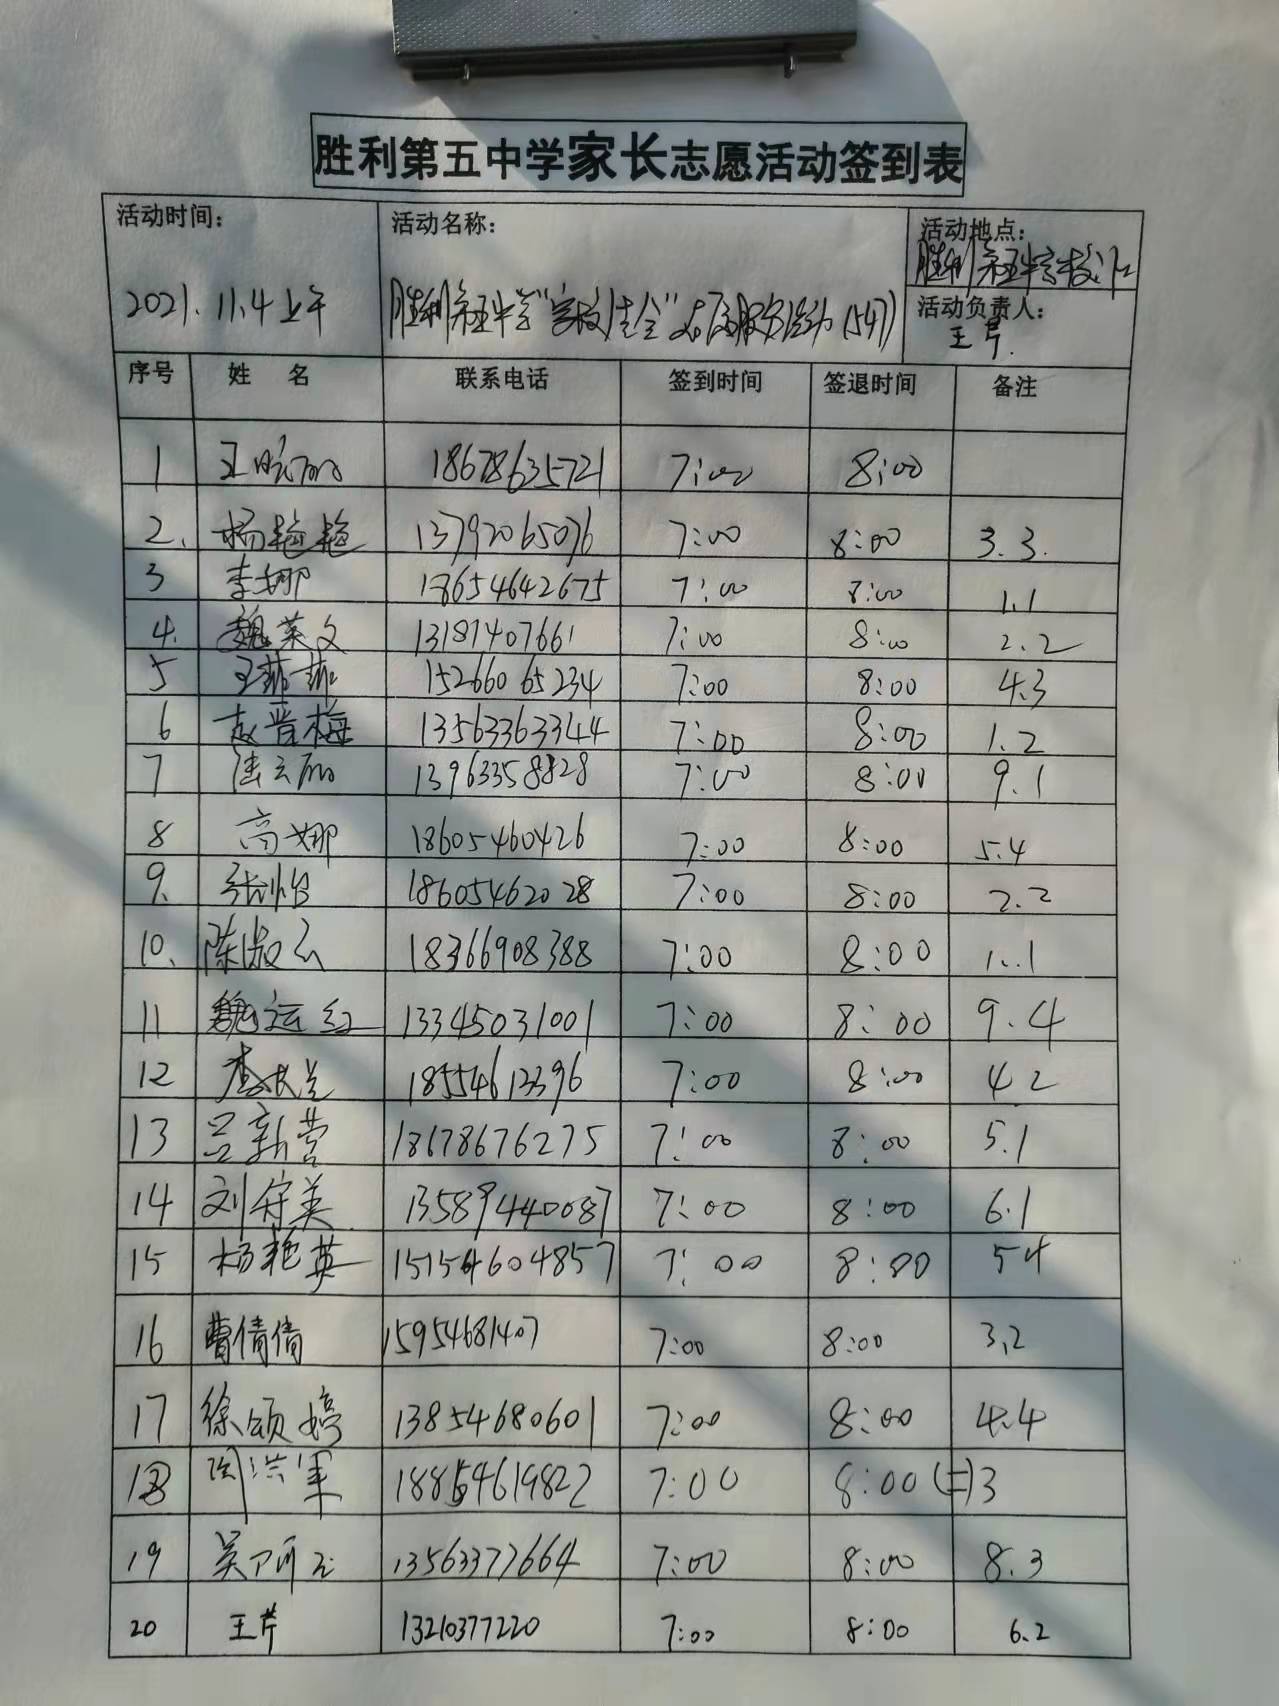 胜利第五中学家长志愿活动签到表
活动时间： 活动名称： 活动地点：
胜利第五中学校门口
2021.11.4上午 胜利第五中学"家校社会"志愿服务活动（547）
活动负责人：
王芹.
序号 姓 名 联系电话 签到时间 签退时间 备注
1 王晓丽 18678635721 7:00 8:00
2. 杨艳艳 13792065076 7:00 8:00 3.3.
3 李娜 18654642675 7:00 8:00 1.1
4. 魏英文 13181407661 7:00 8:00 2.2
5 王菲菲 15266065234 7:00 8:00 4.3
6 赵晋梅 13563363344 7:00 8:00 1.2
7 陆云丽 13963358828 7:00 8:00 9.1
8 高娜 18605460426 7:00 8:00 5.4
9. 张怡 18605462028 7:00 8:00 2.2
10. 陈淑云 18366908388 7:00 8:00 1.1
11 魏运红 13345031001 7:00 8:00 9.4
12 18554613396 7:00 8:00 4.2
13 吕新营 18678676275 7:00 8:00 5.1
14 刘守美 13589440087 7:00 8:00 6.1
15 杨艳英 15154604857 7:00 8:00 5.4
16 曹倩倩 15954681407 7:00 8:00 3.2
17 徐颂婷 13854680601 7:00 8:00 4.4
18 陶洪军 18854619822 7:00 8:00 (二)3
19 吴 13563377664 7:00 8:00 8.3
20 王芹 13210377220 7:00 8:00 6.2